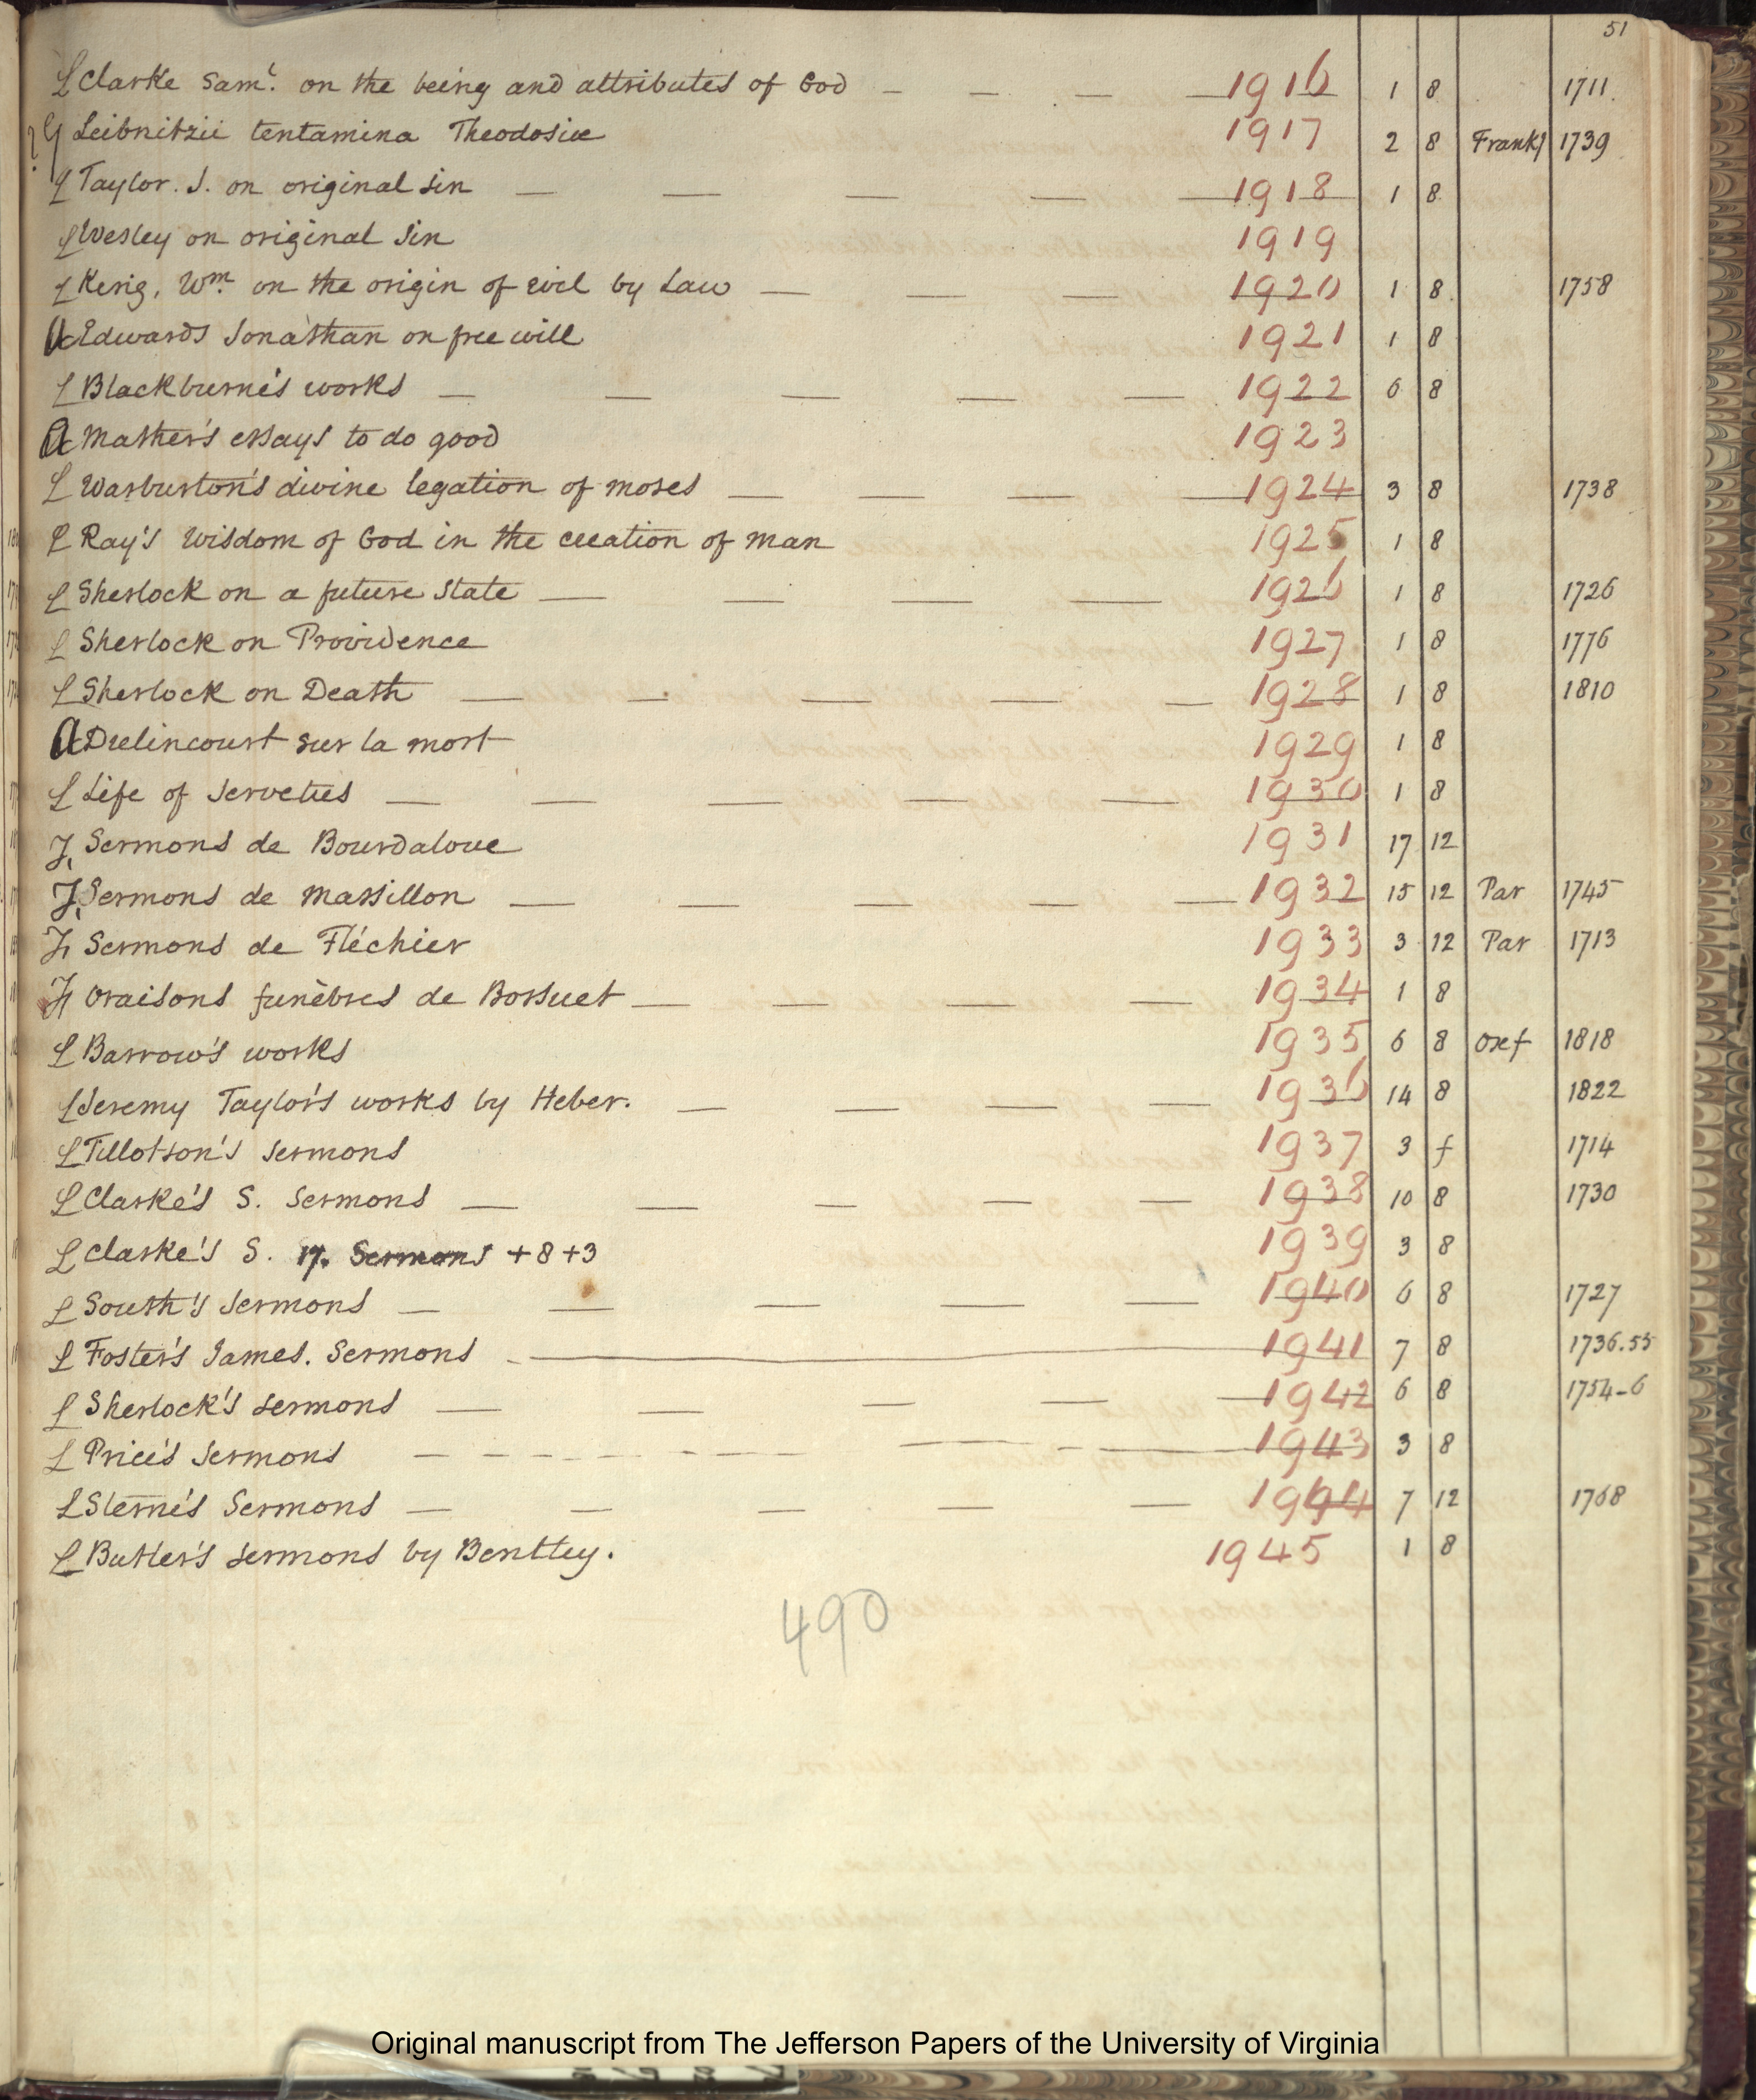 51
L Clarke Saml. on the being and attributes of God 1916 1 8 1711.
? G Leibnitzii tentamina Theodosiæ 1917 2 8 Frankf 1739
L Taylor. J. on original sin 1918 1 8
L Wesley on original sin 1919
L King, Wm. on the origin of evil by Law 1920 1 8 1758
A Edwards Jonathan on free will 1921 1 8
L Blackburne's works 1922 6 8
A Mather's essays to do good 1923
L Warburton's divine legation of Moses 1924 3 8 1738
L Ray's Wisdom of God in the creation of man 1925 1 8
L Sherlock on a future state 1926 1 8 1726
L Sherlock on Providence 1927 1 8 1776
L Sherlock on Death 1928 1 8 1810
A Drelincourt sur la mort 1929 1 8
L Life of Servetus 1930 1 8
F. Sermons de Bourdaloue 1931 17 12
F. Sermons de Massillon 1932 15 12 Par 1745
F. Sermons de Fléchier 1933 3 12 Par 1713
F. Oraisons funèbres de Bossuet 1934 1 8
L Barrow's works 1935 6 8 Oxf 1818
L Jeremy Taylor's works by Heber. 1936 14 8 1822
L Tillotson's sermons 1937 3 f 1714
L Clarke's S. Sermons 1938 10 8 1730
L Clarke's S. 17. Sermons + 8 + 3 1939 3 8
L South's Sermons 1940 6 8 1727
L Foster's James. Sermons 1941 7 8 1736.55
L Sherlock's sermons 1942 6 8 1754-6
L Price's Sermons 1943 3 8
L Sterne's Sermons 1944 7 12 1768
L Butler's sermons by Bentley. 1945 1 8
490
Original manuscript from The Jefferson Papers of the University of Virginia